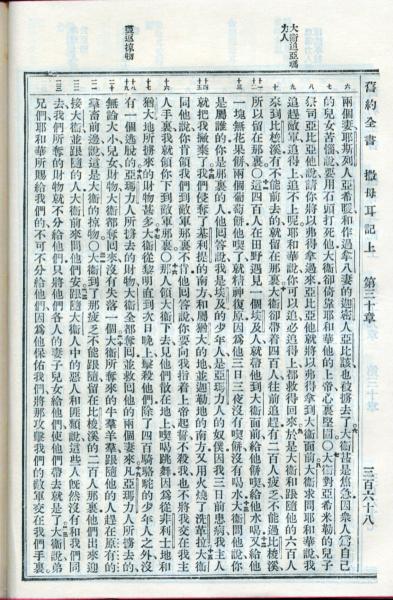 舊約全書 撒母耳記上 第三十章 三百六十八
大衛追亞瑪力人
兩個妻耶斯列人亞希暖和作過拿八妻的迦密人亞比該也被擄去了大衛甚是焦急因衆人爲自己
的兒女苦惱說要用石頭打死他大衛卻倚靠耶和華他的上帝心裏堅固〇大衛對亞希米勒的兒子
祭司亞比亞他說請你將以弗得拿過來亞比亞他就將以弗得拿到大衛面前大衛求問耶和華說我
追趕敵軍追得上追不上呢耶和華說你可以追必追得上都救得回來於是大衛和跟隨他的六百人
來到比梭溪有不能前去的就留在那裏大衛卻帶着四百人往前追趕有二百人疲乏不能過比梭溪
所以留在那裏〇這四百人在田野遇見一個埃及人就帶他到大衛面前給他餅喫給他水喝又給他
一塊無花果餅兩個葡萄餅他喫了就精神復原因爲他三日三夜沒有喫餅沒有喝水大衛問他說你
是屬誰的你是那裏的人他回答說我是埃及的少年人是亞瑪力人的奴僕因我三日前患病我主人
就把我撇棄了我們侵奪了基利提的南方和屬猶大的地並迦勒地的南方又用火燒了洗革拉大衛
問他說你肯領我們到敵軍那裏不肯他回答說你要向我指着上帝起誓不殺我也不將我交在我主
人手裏我就領你下到敵軍那裏〇那人領大衛下去見他們散在地上喫喝跳舞因爲從非利士地和
猶大地所擄來的財物甚多大衛從黎明直到次日晚上擊殺他們除了四百騎駱駝的少年人之外沒
有一個逃脫的亞瑪力人所擄去的財物大衛全都奪回並救回他的兩個妻來凡亞瑪力人所擄去的
無論大小兒女財物大衛都奪回來沒有失落一個大衛所奪來的牛羣羊羣跟隨他的人趕在原有的
羣畜前邊說這是大衛的掠物〇大衛到了那疲乏不能跟隨留在比梭溪的二百人那裏他們出來迎
接大衛並跟隨的人大衛前來問他們安跟隨大衛人中的惡人和匪類說這些人既然沒有和我們同
去我們所奪的財物就不分給他們只將他們各人的妻子兒女給他們使他們帶去就是了大衛說弟
兄們耶和華所賜給我們的不可不分給他們因爲他保佑我們將那攻擊我們的敵軍交在我們手裏